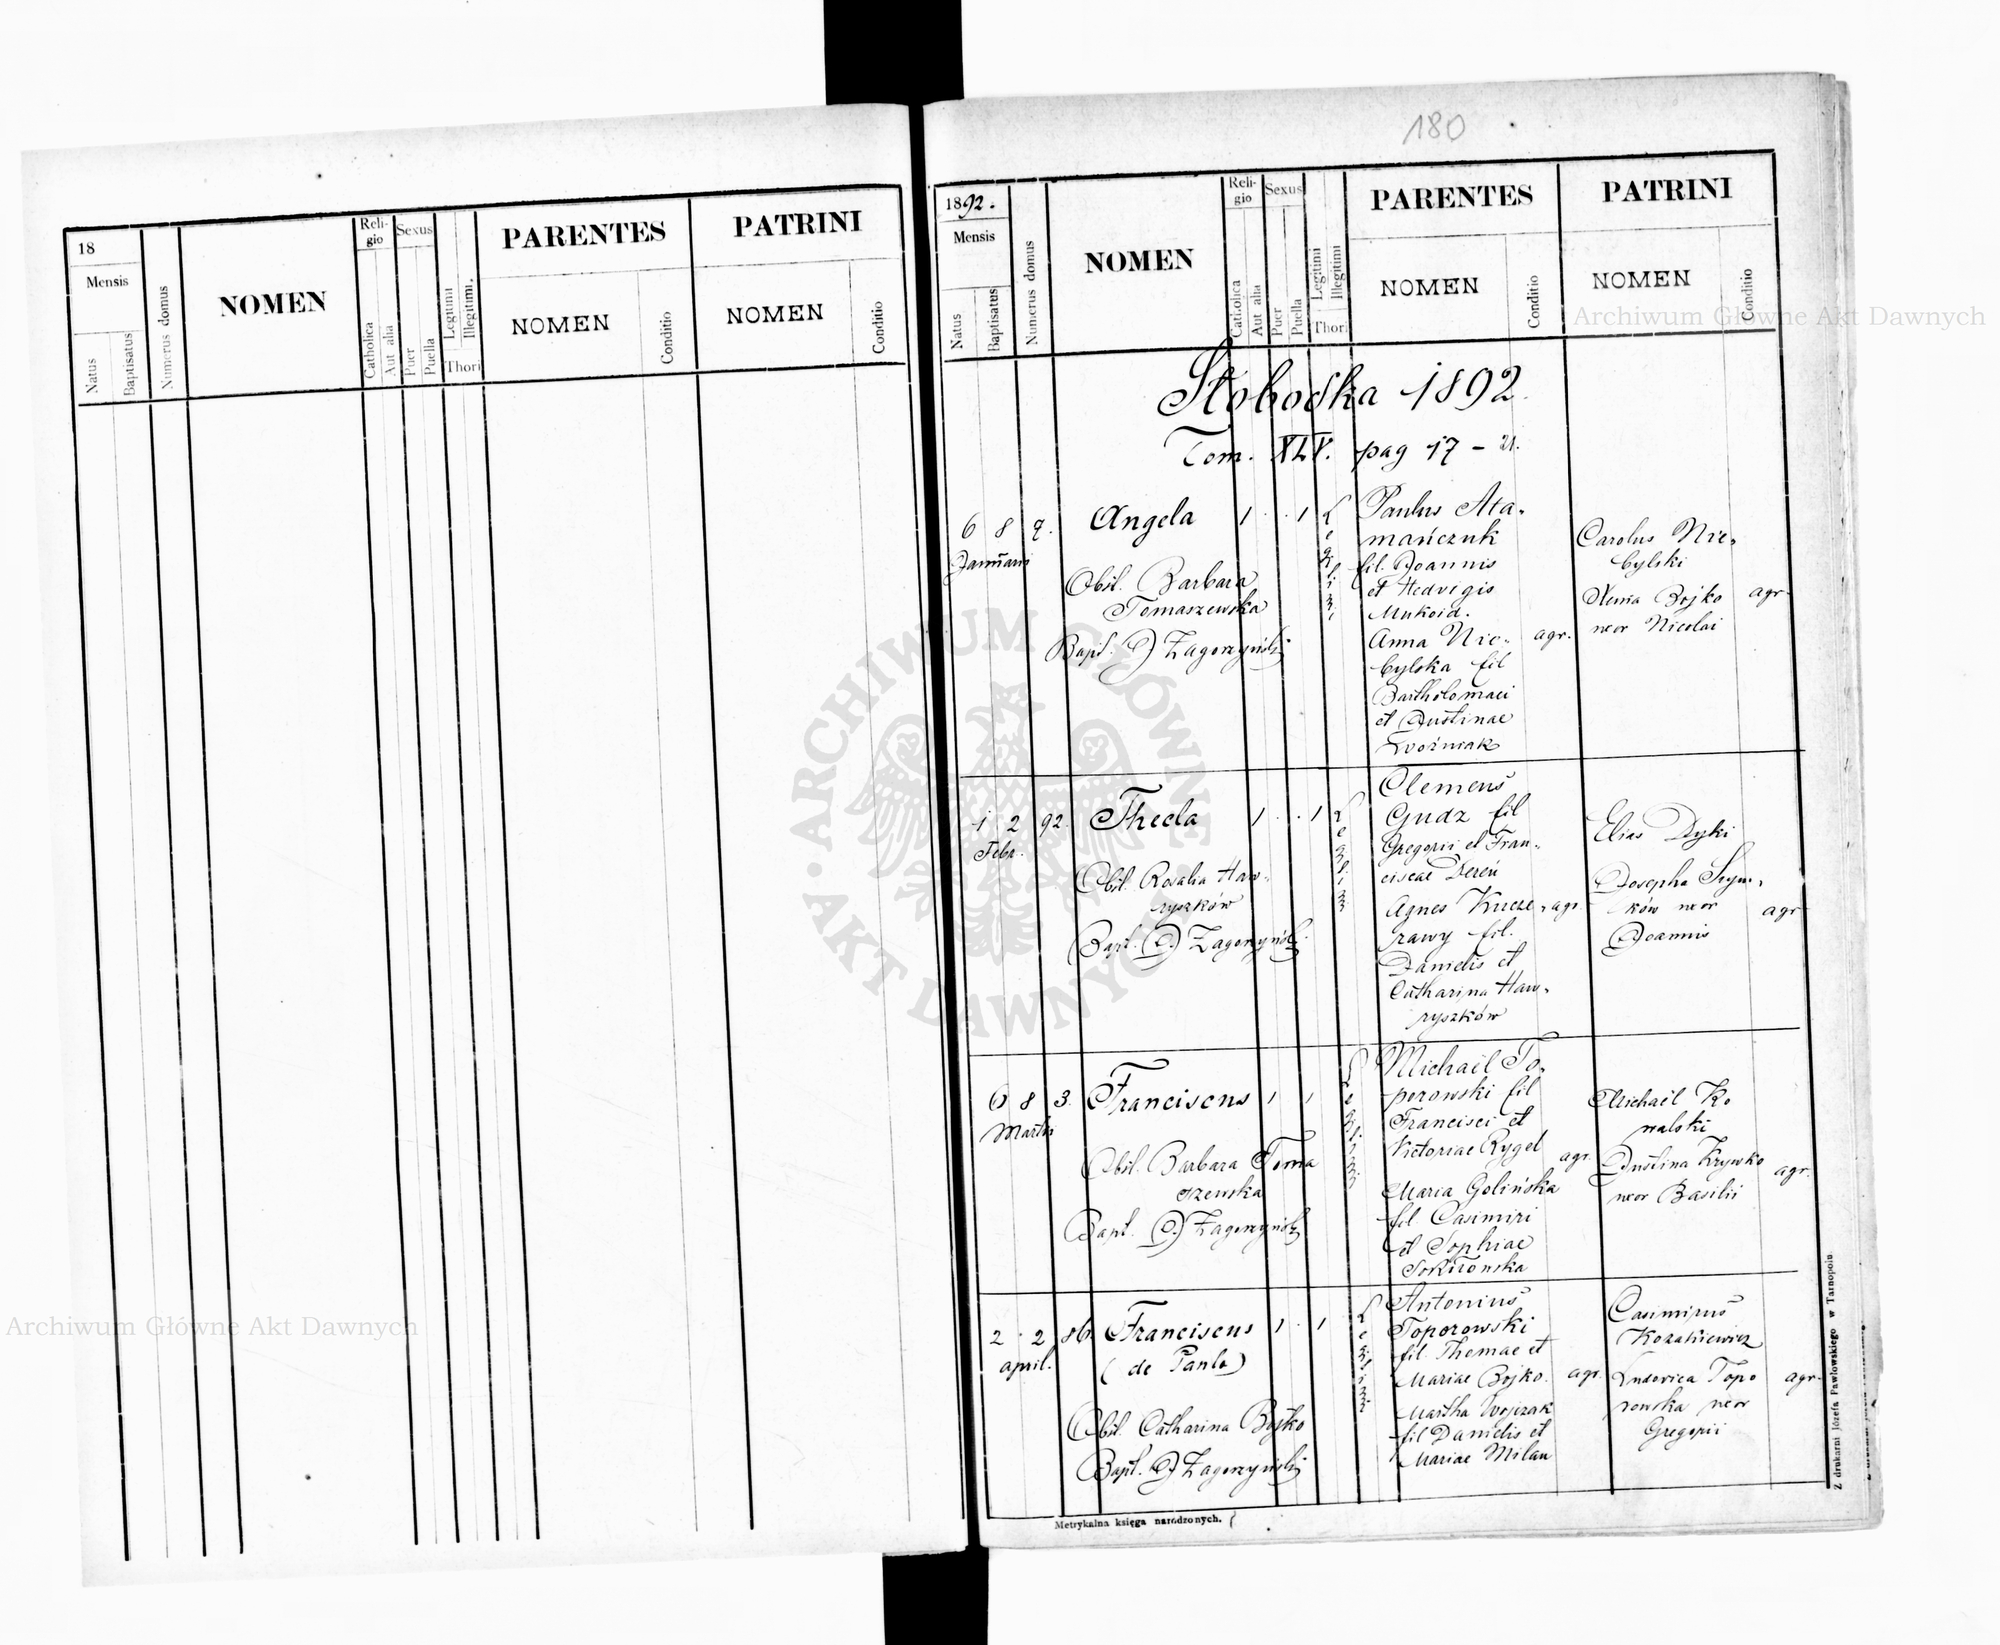 180
18
Mensis
Natus
Baptisatus
Numerus domus
NOMEN
Reli-
gio
Catholica
Aut alia
Sexus
Puer
Puella
Legitimi
Illegitimi.
Thori
PARENTES
NOMEN
Conditio
PATRINI
NOMEN
Conditio
1892.
Mensis
Natus
Baptisatus
Numerus domus
NOMEN
Reli-
gio
Catholica
Aut alia
Sexus
Puer
Puella
Legitimi
Illegitimi
Thori
PARENTES
NOMEN
Conditio
PATRINI
NOMEN
Conditio
Słobodka 1892.
Tom. XLV. pag 17 - 21.
6 8 7.
Januarii
Angela
1 . . 1
Legi
Obst. Barbara
Tomaszewska
Bapt. J Zagorzyński
Paulus Ata-
mańczuk
fil. Joannis
et Hedvigis
Mukoid.
Anna Nie-
bylska fil
Bartholomaei
et Justinae
Woźniak
agr.
Carolus Nie-
bylski
Xenia Bojko
uxor Nicolai
agr.
1 2 92.
Febr.
Thecla
1 . . 1
Obst. Rosalia Haw-
ryszków
Bapt. J. Zagorzyński
Clemens
Gudz fil
Gregorii et Fran-
ciscae Dereń
Agnes Kucze-
rawy fil.
Danielis et
Catharina Haw-
ryszków
agr.
Elias Dyki
Josepha Szym-
ków uxor
Joannis
agr
6 8 3.
Martii
Franciscus
1 1
Obst. Barbara Toma
szewska
Bapt. J. Zagorzyński
Michael To-
porowski fil
Francisci et
Victoriae Rygel
Maria Golińska
fil. Casimiri
et Sophiae
agr.
Michael Ko
walski
Justina Krywko
uxor Basilii
agr.
2 2 86.
april.
Franciscus
(de Paulo)
1 . 1
Obst. Catharina Bojko
Bapt. J Zagorzyński
Antonius
Toporowski
fil. Thomae et
Mariae Bojko.
Martha Wojczak
fil Danielis et
Mariae Milan
agr.
Casimirus
Kozakiewicz
Ludovica Topo
rowska uxor
Gregorii
agr.
Metrykalna księga narodzonych.
Z drukarni Józefa Pawłowskiego w Tarnopolu.
Archiwum Główne Akt Dawnych
Archiwum Główne Akt Dawnych
ARCHIWUM GŁÓWNE AKT DAWNYCH